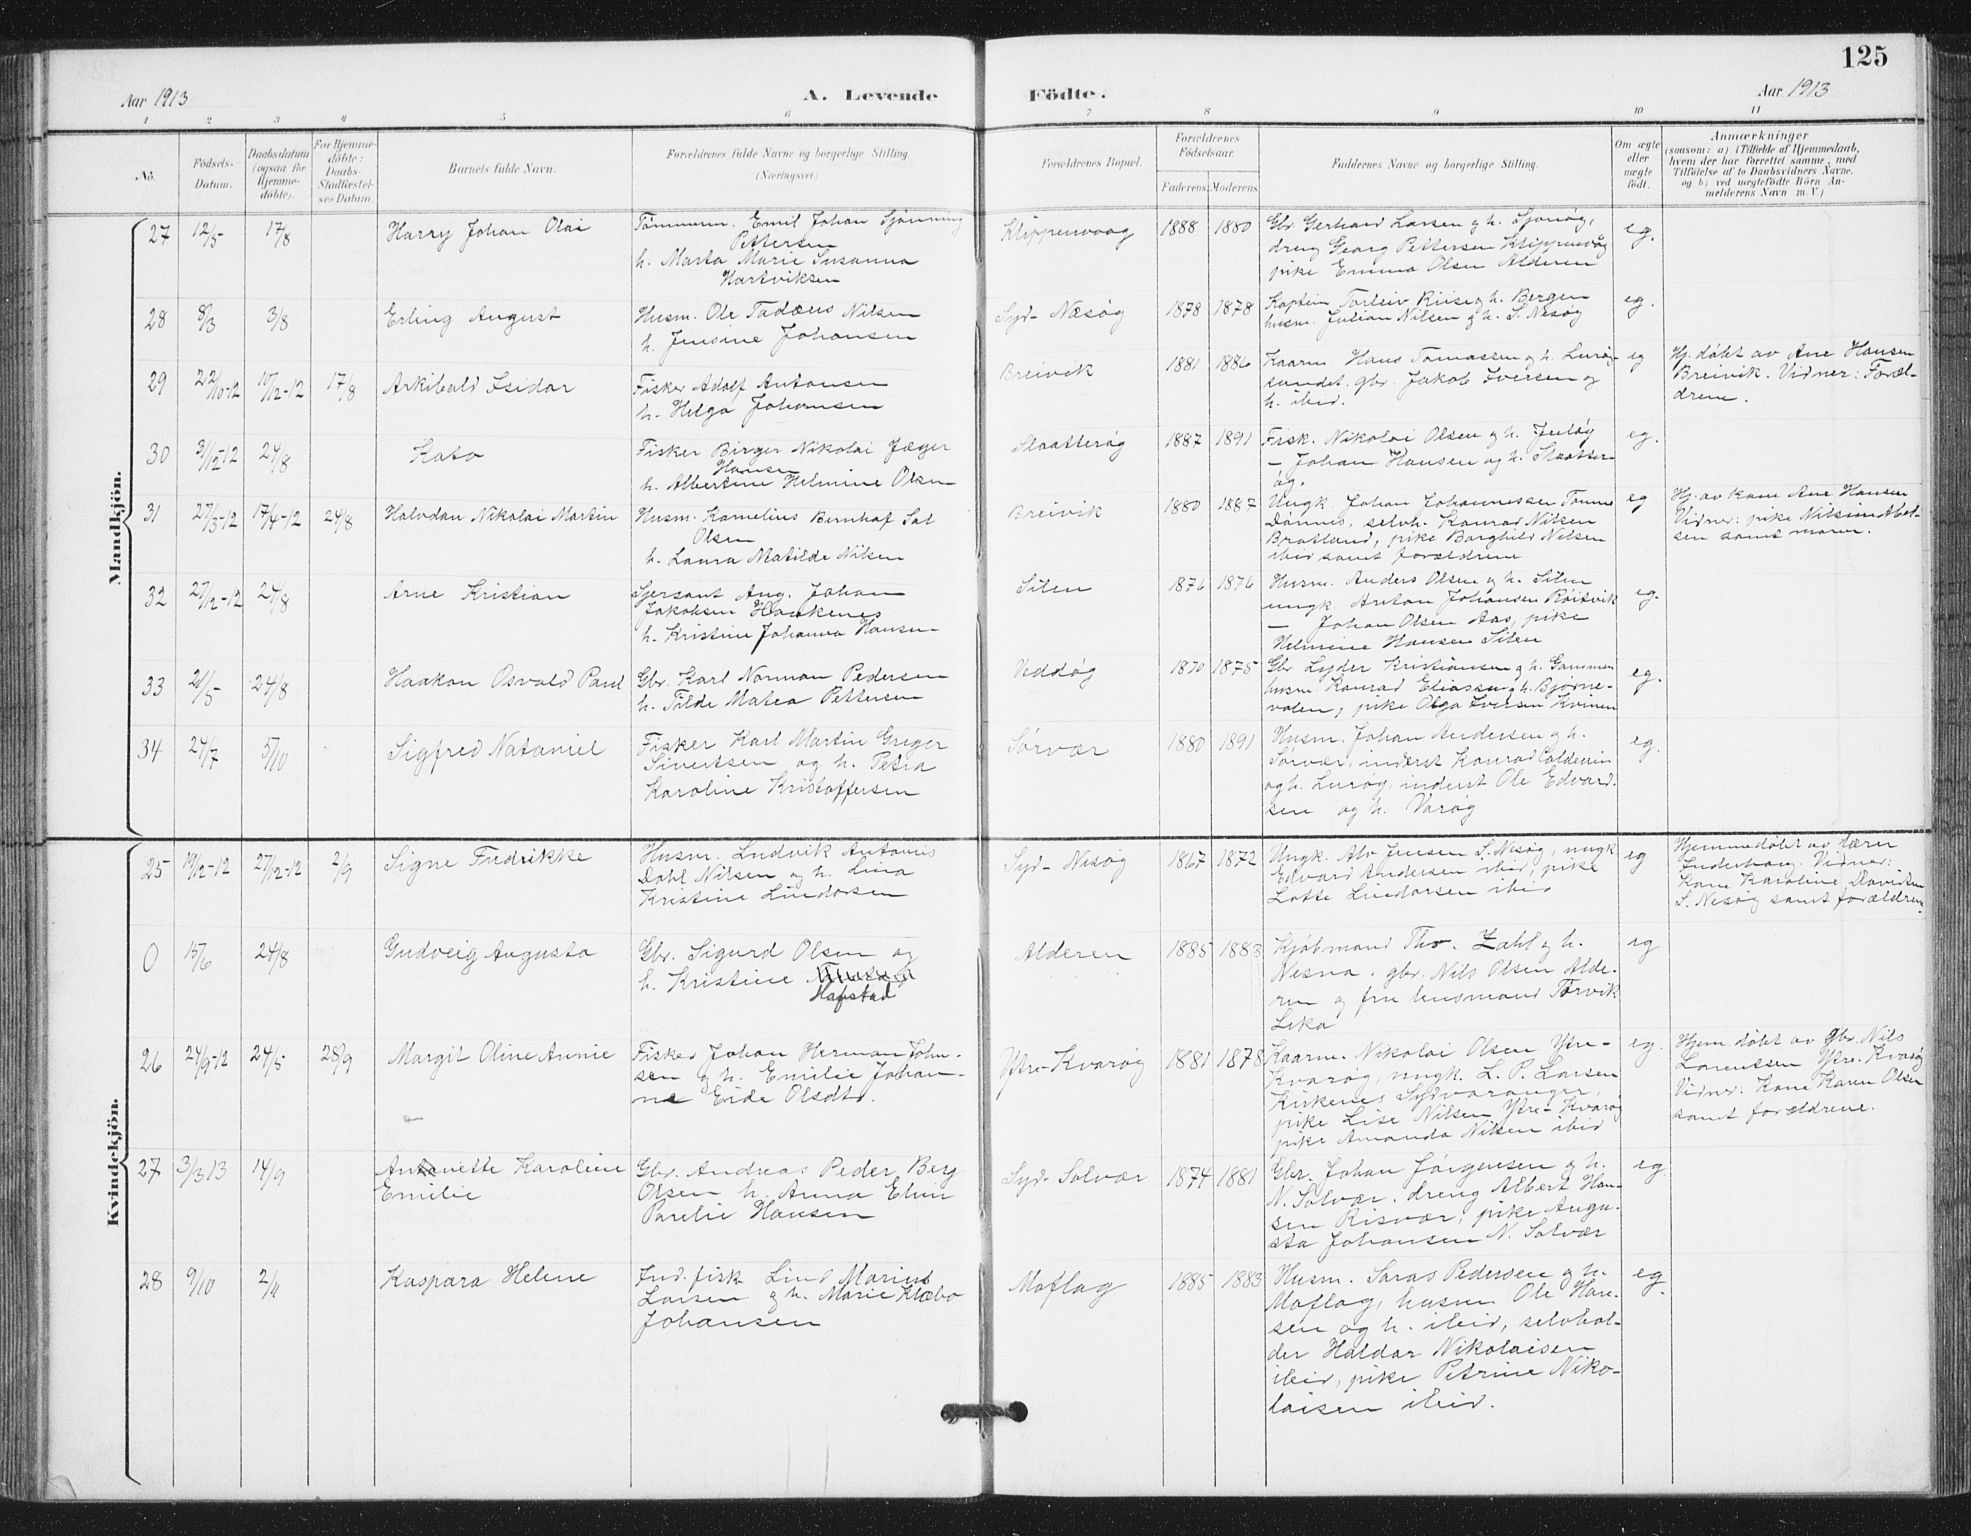 125
Aar 1913 A. Levende Födte. Aar 1913
1 2 3 4 5 6 7 8 9 10 11
No. Födsels-Datum. Daabsdatum (ogsaa for Hjemmedöbte). For Hjemmedöbte: Daabs-Stadfæstelses Datum. Barnets fulde Navn. Forældrenes fulde Navne og borgerlige Stilling. (Næringsvei.) Forældrenes Bopæl. Forældrenes Födselsaar. Faderens. Moderens. Faddernes Navne og borgerlige Stilling. Om ægte eller uægte födt. Anmærkninger (saasom: a) i Tilfælde af Hjemmedaab, hvem der har forrettet samme, med Tilföielse af to Daabsvidners Navne, og b) ved uægtefödte Börn Anmelderens Navn m. V.)
Mandkjön.
27 12/5 17/8 Harry Johan Olai
Tömmerm. Emil Johan Sjönning
Pettersen
h. Marta Marie Susanna
Hartviksen
Klippenvaag 1888 1880
Gbr. Gerhard Larsen og h. Sjonög,
dreng Georg Pettersen Klippenvåg
pike Emma Olsen Alderen
eg.
28 8/3 3/8 Erling August
Husm. Ole Tadæus Nilsen
h. Jensine Johansen
Syd-Næsög 1878 1878
Kaptein Torleiv Riise og h. Bergen
husm. Julian Nilsen og h. S. Nesög
eg.
29 22/10-12 10/12-12 17/8 Arkibald Isidor
Fisker Adolf Antonsen
h. Helga Johansen
Breivik 1881 1886
Kaarm. Hans Tomassen og h. Lurög-
sundet. gbr. Jakob Iversen og
h. ibid.
eg
Hj. døbt av Ane Hansen
Breivik. Vidner: Foræl-
drene.
30 31/12-12 24/8 Kato
Fisker Birger Nikolai Jæger
Hansen
h. Albertine Helmine Olsen
Slaatterög 1887 1891
Fisk. Nikolai Olsen og h.
— Johan Hansen og h. Slaatter-
ög.
eg.
31 27/3-12 17/4-12 24/8 Halvdan Nikolai Martin
Husm. Kornelius
Olsen
h. Laura Matilde Nilsen
Breivik 1880 1887
Ungk. Johan Johannessen
Dönnes, selvh. Konrad Nilsen
Bratland, pike Borghild Nilsen
ibid samt forældrene
eg
Hj. av kone Ane Hansen
Vidner: pike
sen samt moren.
32 27/12-12 24/8 Arne Kristian
Sjersant Aug. Johan
Jakobsen Haakenes
h. Kristine Johanna Hansen
Silen 1876 1876
Husm. Anders Olsen og h. Silen
ungk Anton Johansen Röitvik
— Johan Olsen Aas, pike
Helmine Hansen Silen
eg.
33 21/5 24/8 Haakon Osvald Paul
Gbr. Karl Norman Pedersen
h. Tilde Matea Pettersen
Veddög 1870 1875
Gbr Lyder Kristiansen og h. Gammen
husm. Konrad Eliassen og h. Bjørne-
valen, pike Olga Iversen Kvinen
eg.
34 24/7 5/10 Sigfred Nataniel
Fisker Karl Martin Greger
Sivertsen og h. Petra
Karoline Kristoffersen
Sörvær 1880 1891
Husm. Johan Andersen og h.
Sörvær, inderst Konrad Coldevin
og h. Lurög, inderst Ole Edvard-
sen og h. Varög
eg.
Kvindekjön.
25 19/12-12 27/12-12 2/9 Signe Fredrikke
Husm. Ludvik Antonis
Dahl Nilsen og h. Lina
Kristine Lindorsen
Syd-Nesög 1867 1872
Ungk. Alv Jensen S. Nesög, ungk
Edvard Andersen ibid, pike
Lotte Lindorsen ibid
eg
Hjemmedöbt av lærer
Inderhaug. Vidner:
Kone Karoline Davidsen
S. Nesög samt forældrene.
0 15/6 24/8 Gudveig Augusta
Gbr. Sigurd Olsen og
h. Kristine
Hafstad
Alderen 1885 1883
Kjöbmand Thv. Zahl og h.
Nesna. gbr. Nils Olsen Alde-
ren og fru husmand Torvik
Leka
eg
26 24/9-12 24/5 28/9 Margit Oline Annie
Fisker Johan Herman John-
sen og h. Emilie Johan-
ne Eide Olsdtr.
Ytre-Kvarög 1881 1878
Kaarm. Nikolai Olsen Ytre-
Kvarög, ungk. L. P. Larsen
Kirkenes Sydvaranger,
pike Lise Nilsen Ytre-Kvarög
pike Amanda Nilsen ibid
eg.
Hjem döbt av gbr. Nils
Lorentsen Ytre-Kvarög
Vidner: Kone Karen Olsen
samt forældrene.
27 3/3 13 14/9 Antonette Karoline
Emilie
Gbr. Andreas Peder Berg
Olsen h. Anna Elise
Parelie Hansen
Syd-Solvær 1874 1881
Gbr. Johan Jörgensen og h.
N. Solvær. dreng Albert Han-
sen Risvær, pike Augu-
sta Johansen N. Solvær
eg.
28 9/10 2/11 Kaspara Helene
Ind. fisk Lind Marius
Larsen og h. Marie Klæbo
Johansen
Moflag 1885 1883
Husm. Saras Pedersen og h.
Moflag, husm. Ole Han-
sen og h. ibid, selvhol-
der Haldor Nikolaisen
ibid, pike Petrine Niko-
laisen ibid.
eg.